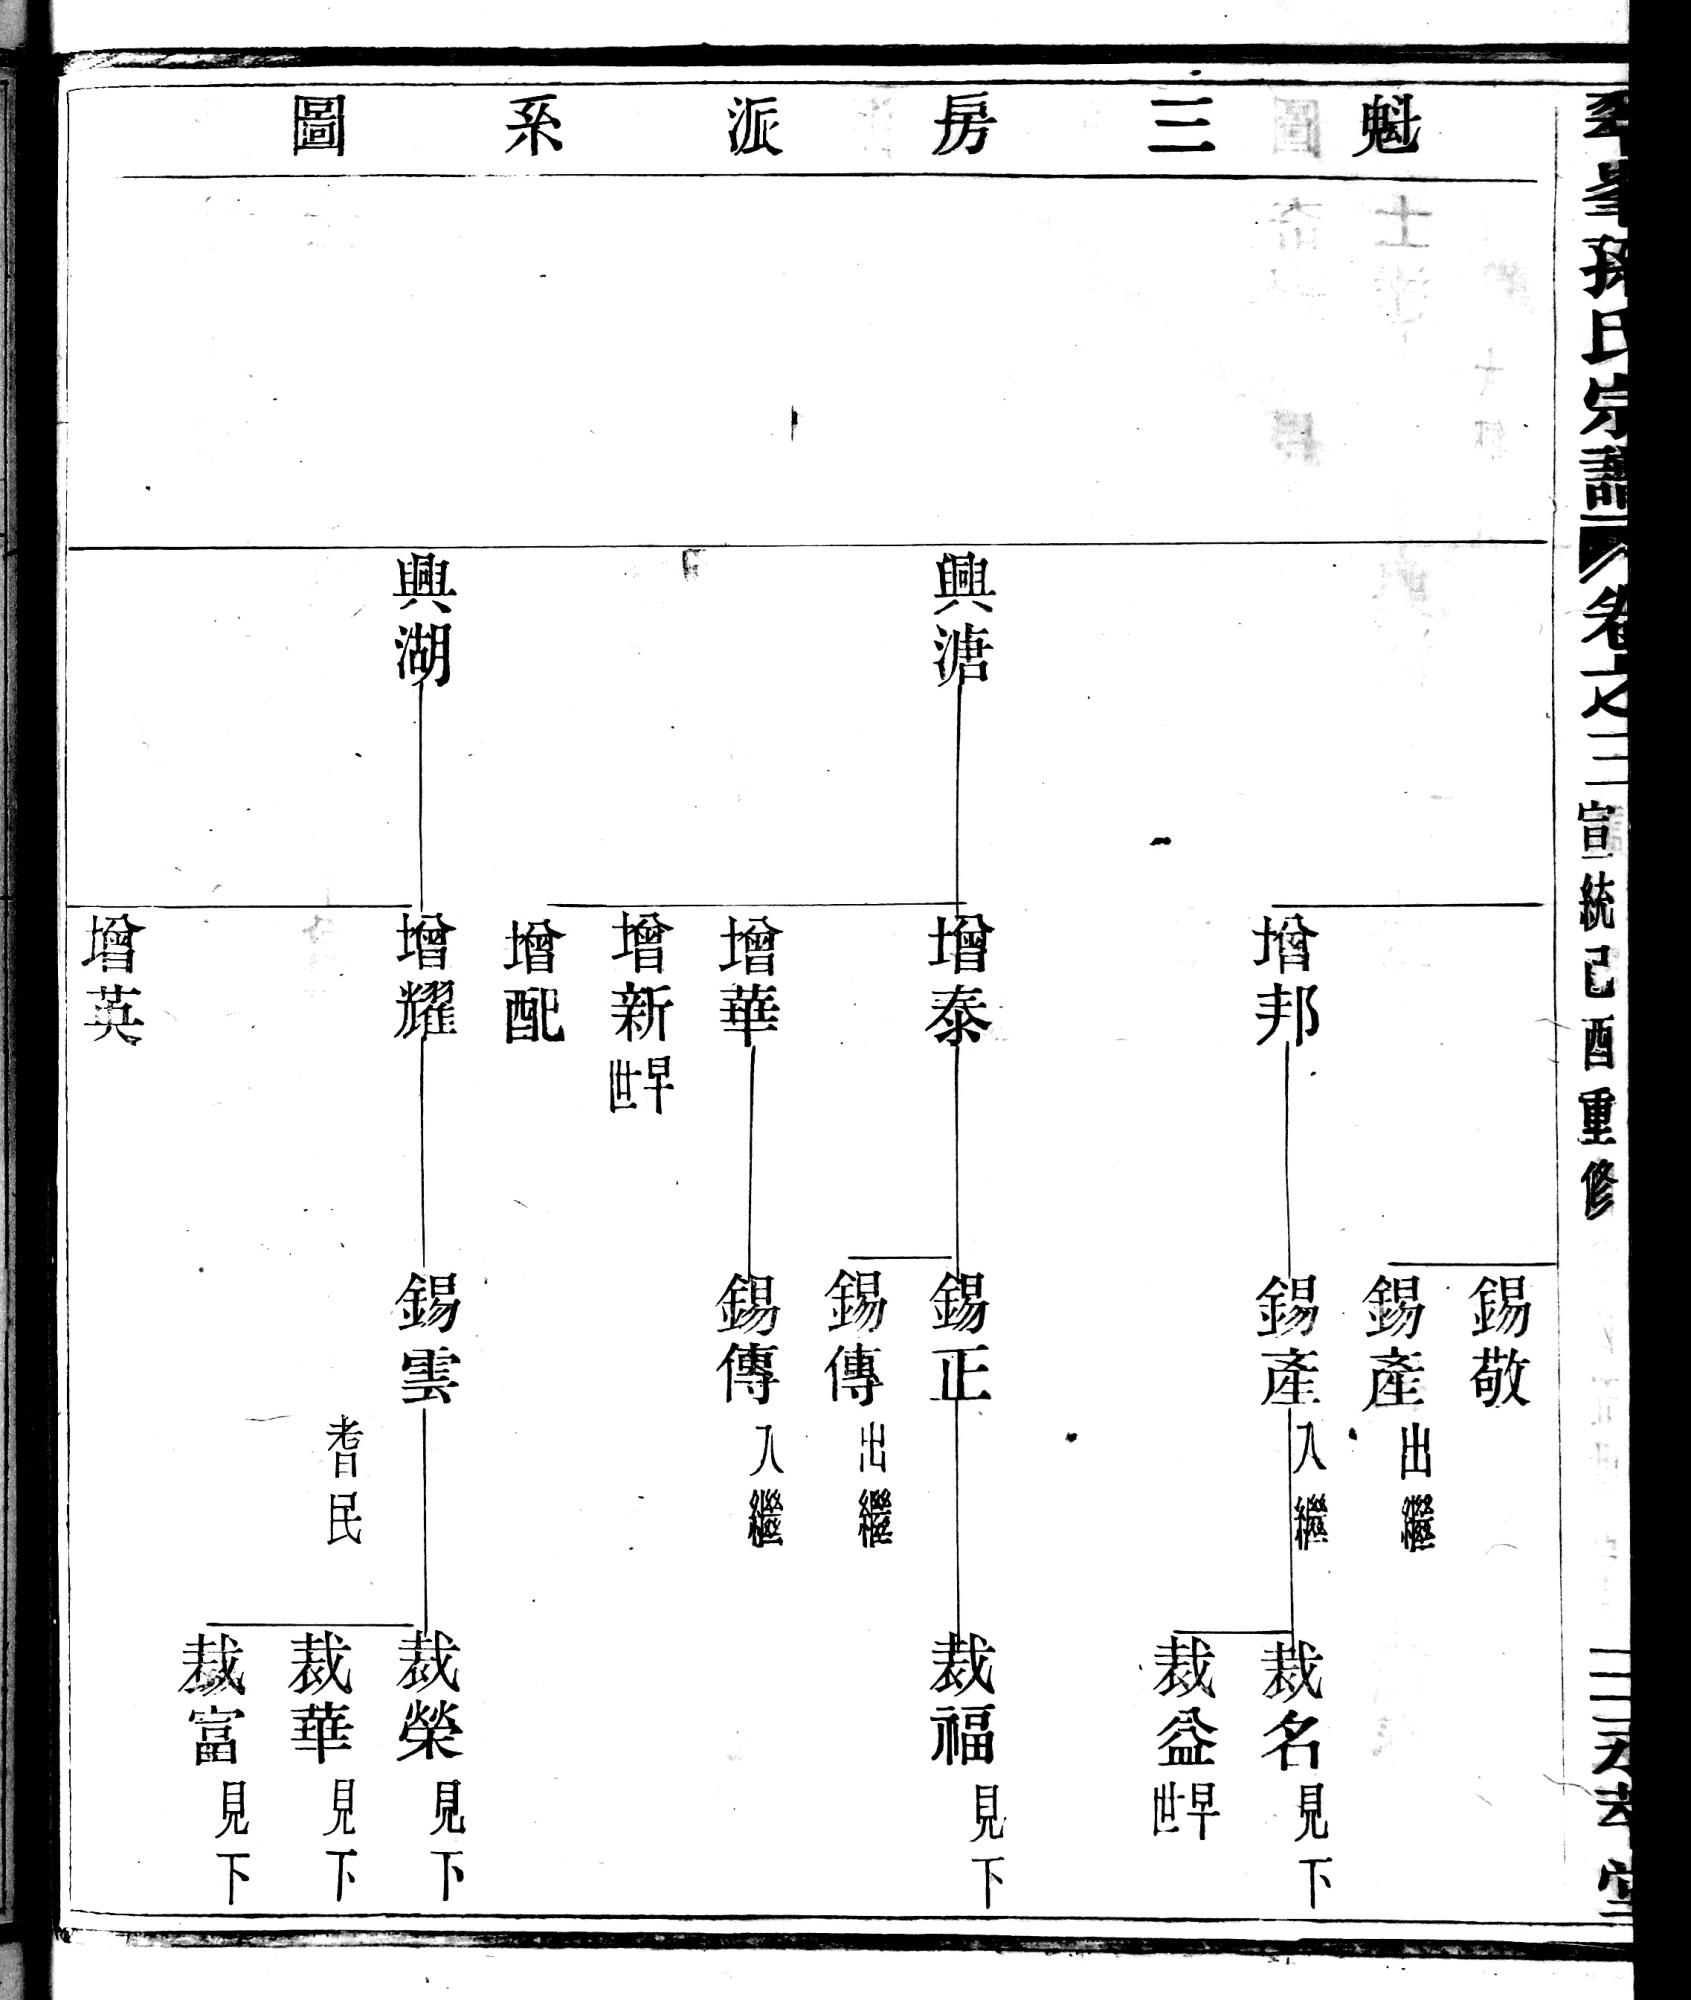 孫氏宗譜 卷之三 宣統己酉重修
魁三房派系圖
興溏
興湖
增邦
增泰
增華
增新 早世
增配
增耀
增英
錫敬
錫產 出繼
錫產 入繼
錫正
錫傳 出繼
錫傳 入繼
錫雲 耆民
裁名 見下
裁益 早世
裁福 見下
裁榮 見下
裁華 見下
裁富 見下